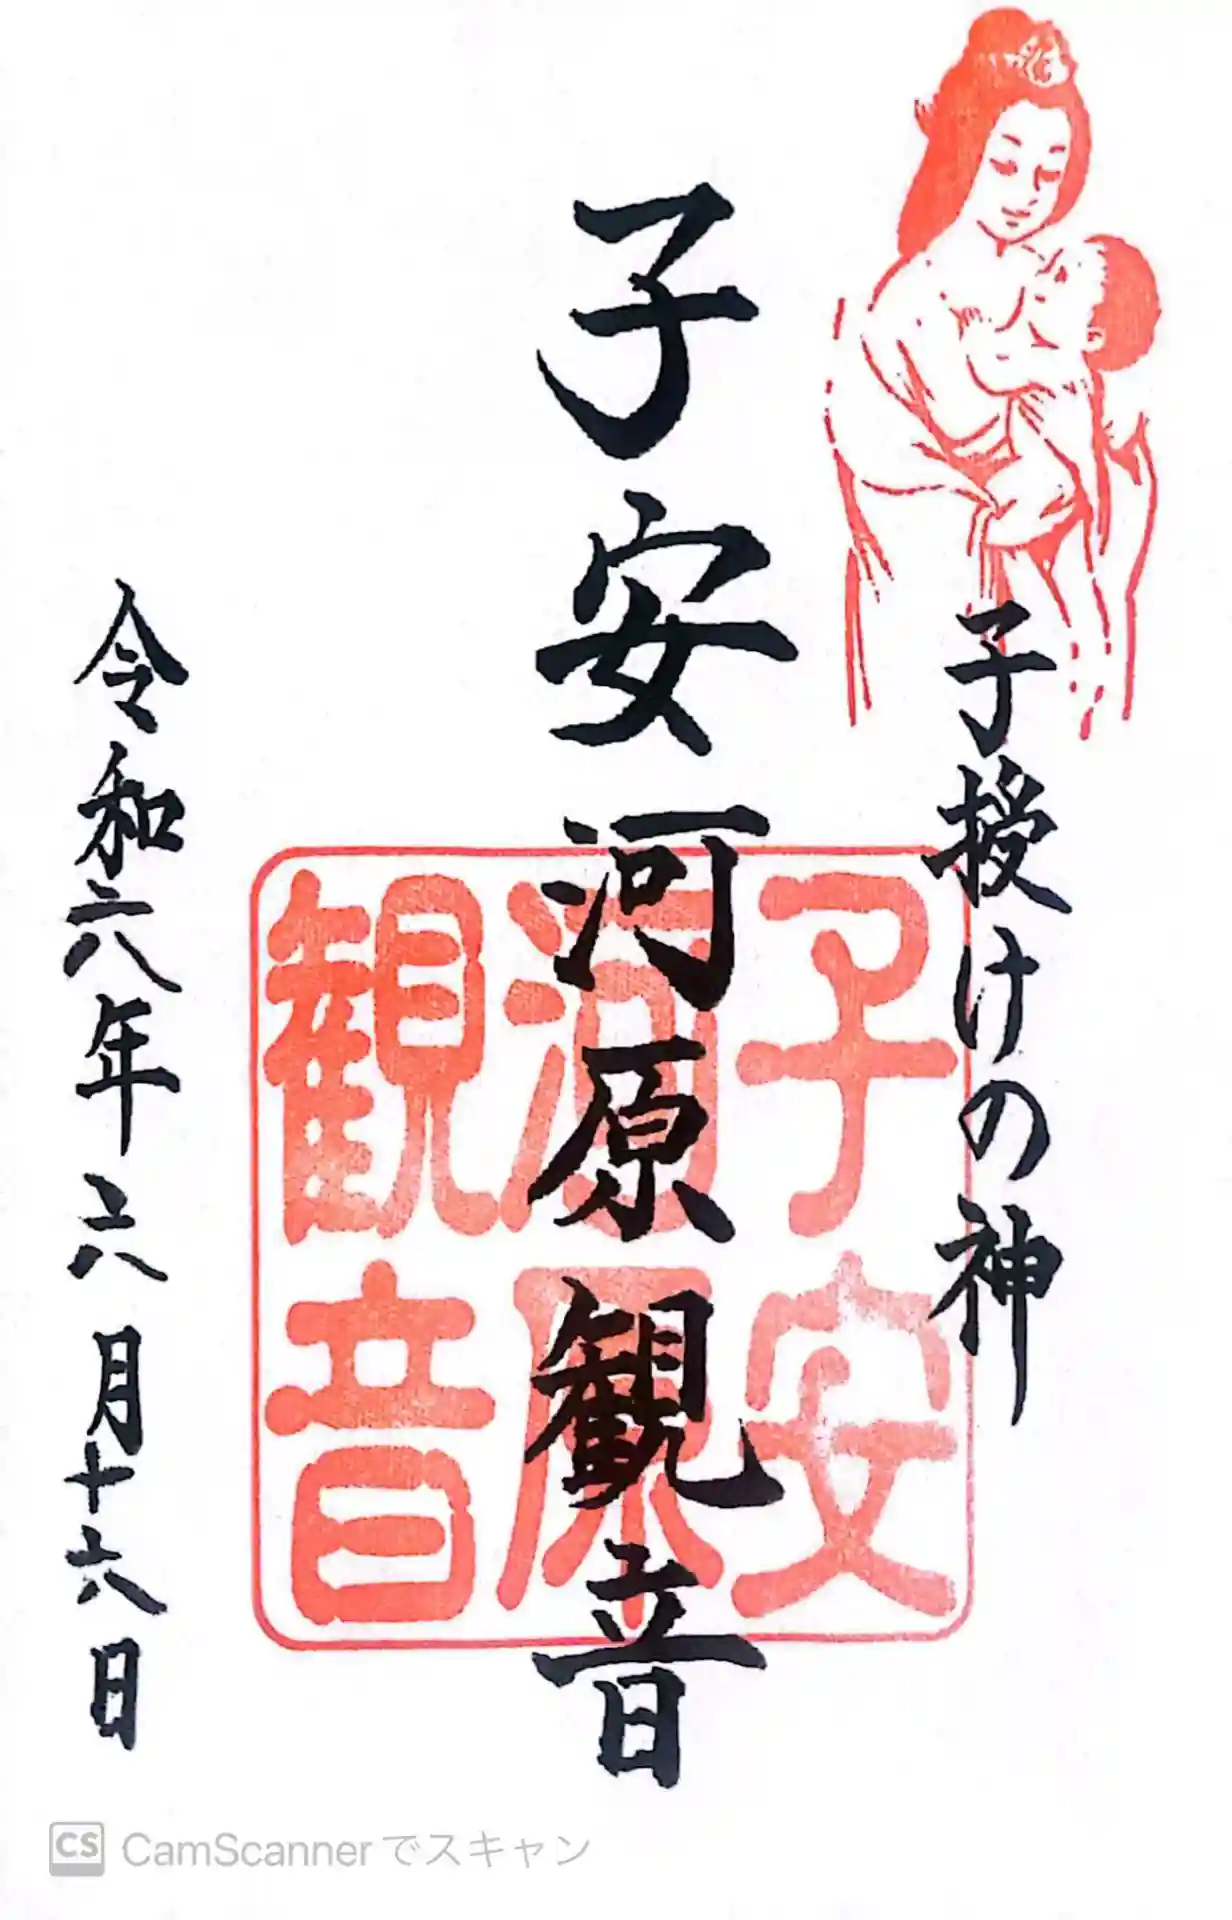 子授けの神
子安河原観音
子安
河原
観音
令和六年六月十六日
CS CamScannerでスキャン